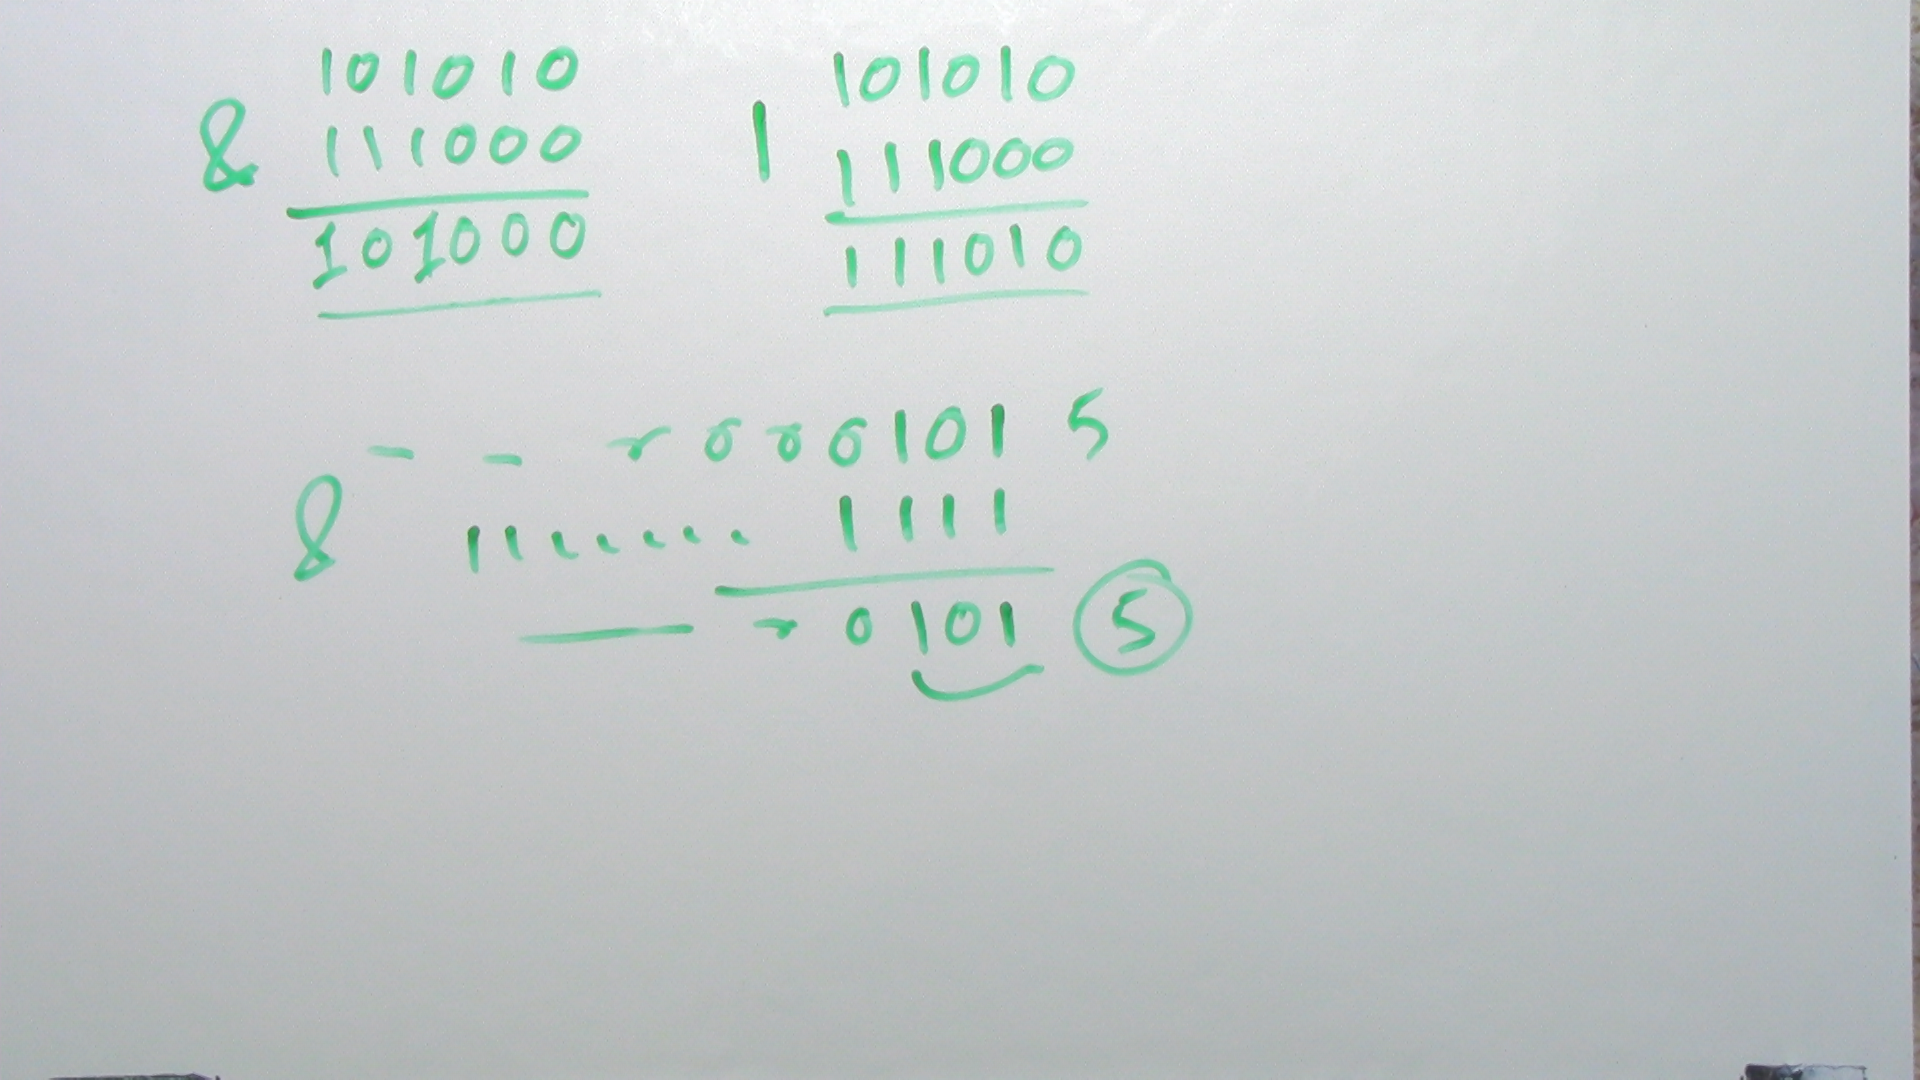 101010
& 111000
101000
101010
| 111000
111010
- - 0000101 5
& 11...... 1111
0101 5